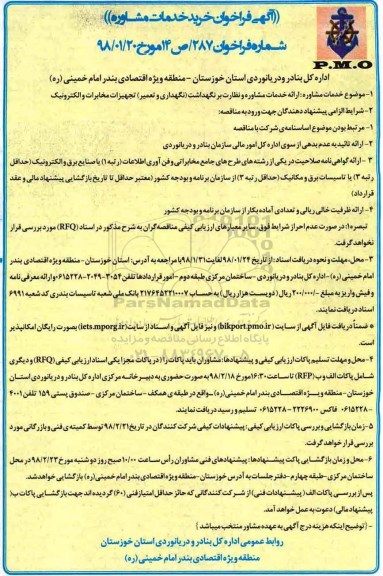 ((آگهی فراخوان خرید خدمات مشاوره))
شماره فراخوان ۲۸۷/ص/۱۴ مورخ ۹۸/۰۱/۲۰
P.M.O
اداره کل بنادر و دریانوردی استان خوزستان - منطقه ویژه اقتصادی بندر امام خمینی (ره)
۱- موضوع خدمات مشاوره: ارائه خدمات مشاوره و نظارت بر نگهداشت (نگهداری و تعمیر) تجهیزات مخابرات و الکترونیک
۲- شرایط الزامی پیشنهاد دهندگان جهت ورود به مناقصه:
۱- مرتبط بودن موضوع اساسنامه ی شرکت با مناقصه
۲- ارائه تائیدیه عدم بدهی از سوی اداره کل امور مالی سازمان بنادر و دریانوردی
۳- ارائه گواهی نامه صلاحیت در یکی از رشته های طرح های جامع مخابراتی و فن آوری اطلاعات (رتبه ۱) یا صنایع برق و الکترونیک (حداقل
رتبه ۳) یا تاسیسات برق و مکانیک (حداقل رتبه ۳) از سازمان برنامه و بودجه کشور (معتبر حداقل تا تاریخ بازگشایی پیشنهاد مالی و عقد
قرارداد)
۴- ارائه ظرفیت خالی ریالی و تعدادی آماده بکار از سازمان برنامه و بودجه کشور
تبصره۱: در صورت عدم احراز شرایط فوق، سایر معیارهای ارزیابی کیفی مناقصه گران به شرح مذکور در اسناد (RFQ) مورد بررسی قرار
نخواهد گرفت.
۳- محل، مهلت و نحوه دریافت اسناد: از تاریخ ۹۸/۰۱/۲۴ لغایت ۹۸/۱/۳۱ با مراجعه به آدرس: استان خوزستان - منطقه ویژه اقتصادی بندر
امام خمینی (ره) - اداره کل بنادر و دریانوردی - ساختمان مرکزی طبقه دوم - امور قراردادها تلفن ۳۰۴۹-۲۰۵۴-۰۶۱۵۲۲۸ و ارائه معرفی نامه
و فیش واریز به مبلغ ۲۰۰/۰۰۰/- ریال (دویست هزار ریال) به حساب ۲۱۷۶۴۵۲۲۱۰۰۰۷ بانک ملی شعبه تاسیسات بندری کد شعبه ۶۹۹۱
اسناد دریافت نمایند.
* ضمناً دریافت فایل آگهی از سایت (bikport.pmo.ir) و نیز فایل آگهی و اسناد از سایت (iets.mporg.ir) بصورت رایگان امکانپذیر
است.
۴- محل و مهلت تسلیم پاکات ارزیابی کیفی و پیشنهادها: مشاوران باید پاکات را (در پاکات مجزا یکی اسناد ارزیابی کیفی (RFQ) و دیگری
شامل پاکات الف و ب (RFP)) تا ساعت ۱۶:۳۰ مورخ ۹۸/۲/۱۸ به صورت حضوری به دبیرخانه مرکزی اداره کل بنادر و دریانوردی استان
خوزستان - منطقه ویژه اقتصادی بندر امام خمینی (ره) - واقع در طبقه ی همکف - ساختمان مرکزی - صندوق پستی ۱۵۹ تلفن ۴۰۰۱
- ۰۶۱۵۲۲۸ فاکس ۲۲۲۶۹۰۰ - ۰۶۱۵۲۲۸ تسلیم و رسید دریافت نمایند.
۵- زمان بازگشایی و بررسی پاکات ارزیابی کیفی: پیشنهادات کیفی شرکت کنندگان در تاریخ ۹۸/۲/۲۱ توسط کمیته ی فنی و بازرگانی مورد
بررسی قرار خواهد گرفت.
۶- محل و زمان بازگشایی پاکت پیشنهادها: پیشنهادهای فنی مشاوران رأس ساعت ۱۰/۰۰ صبح روز دو شنبه مورخ ۹۸/۲/۲۳ در محل
ساختمان مرکزی - طبقه چهارم - دفتر جلسات به آدرس استان خوزستان - منطقه ویژه اقتصادی بندر امام خمینی (ره) بازگشایی خواهد شد.
پس از بررسی پاکات الف (پیشنهادات فنی) از شرکت کنندگانی که حائز حداقل امتیاز فنی (۶۰) گردیده اند جهت بازگشایی پاکات ب (
پیشنهاد مالی) دعوت به عمل خواهد آمد.
- (توضیح اینکه هزینه درج آگهی به عهده مشاور منتخب میباشد)
روابط عمومی اداره کل بنادر و دریانوردی استان خوزستان
منطقه ویژه اقتصادی بندر امام خمینی (ره)